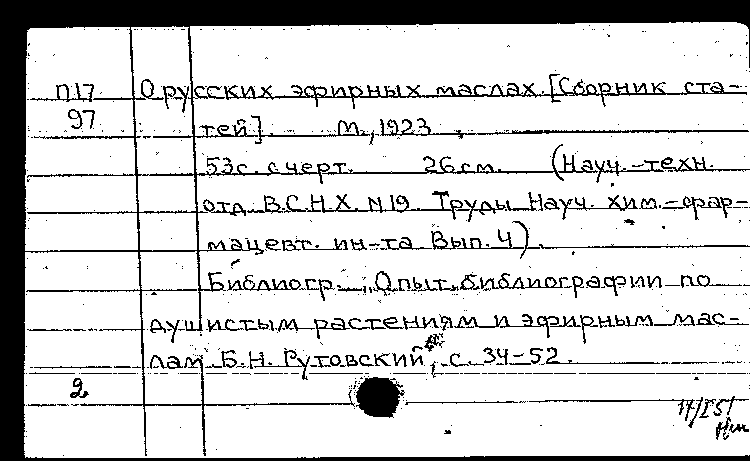 П17 О русских эфирных маслах. [Сборник ста-
97 тей]. М., 1923.
53с. с черт. 26см. (Науч.-техн.
отд. В.С.Н.Х. N19 Труды Науч. хим.-фар-
мацевт. ин-та Вып. 4).
Библиогр. „Опыт библиографии по
душистым растениям и эфирным мас-
лам Б.Н. Рутовский", с. 34-52.
2